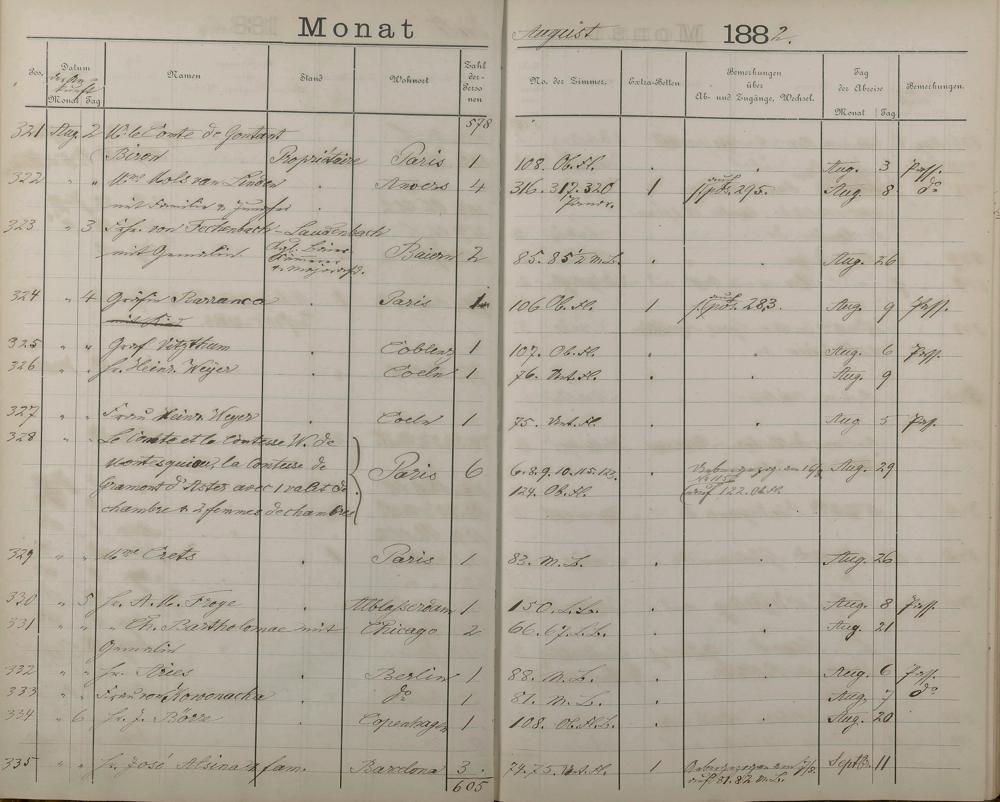 Monat August 1882.
Pos. Datum der An-kunft Monat Tag Namen Stand Wohnort Zahl der Personen No. der Zimmer. Extra-Betten Bemerkungen über Ab- und Zugänge, Wechsel. Tag der Abreise Monat Tag Bemerkungen.
578
321 Aug. 2 Mr. le Comte de Gontaut
Biron Propriétaire Paris 1 108. Ob. St. . . Aug. 3 Pass.
322 " " Mme Mols van Linden . Anvers 4 316. 317. 320 1 auf Pos. 295. Aug. 8 do
mit Familie & Jungfer
323 " 3 Frhr. von Fechenbach-Laudenbach
mit Gemalin Kgl. Baier. Kämmerer Baiern 2 85. 85 1/2 m. L. . . Aug. 26
324 " 4 Gräfin Barranca . Paris 1 106 Ob. St. 1 auf Pos. 283. Aug. 9 Pass.
325 " " Graf Vitzthum . Coblenz 1 107. Ob. St. . . Aug. 6 Pass.
326 " " Hr. Heinr. Weyer . Coeln 1 76. Unt. St. . . Aug. 9
327 " " Frau Heinr. Weyer . Coeln 1 75. Unt. St. . . Aug. 5 Pass.
328 " " Le Comte et la Comtesse W. de
Montesquiou, la Comtesse de Paris 6 6. 8. 9. 10. 115. 123. . Aug. 29
Gramont d'Aster avec 1 valet de 124. Ob. St. auf 122. Ob. St.
chambre & 2 femmes de chambres
329 " " Mme Crets . Paris 1 83. m. L. . . Aug. 26
330 " 5 Hr. A. M. Froge . Alblasserdam 1 150. L. L. . . Aug. 8 Pass.
331 " " " Ch. Bartholomae mit . Chicago 2 66. 67. L. L. . . Aug. 21
Gemalin
332 " " Hr. Aries . Berlin 1 88. m. L. . . Aug. 6 Pass.
333 " " Frau von . do 1 81. m. L. . . Aug. 7 do
334 " 6 Hr. J. Börre . Copenhagen 1 108. Ob. St. L. . . Aug. 20
335 " " Hr. José Alsina & fam. Barcelona 3. 74. 75. Unt. St. 1 Septb. 11
605 auf 81. 82 m. L.